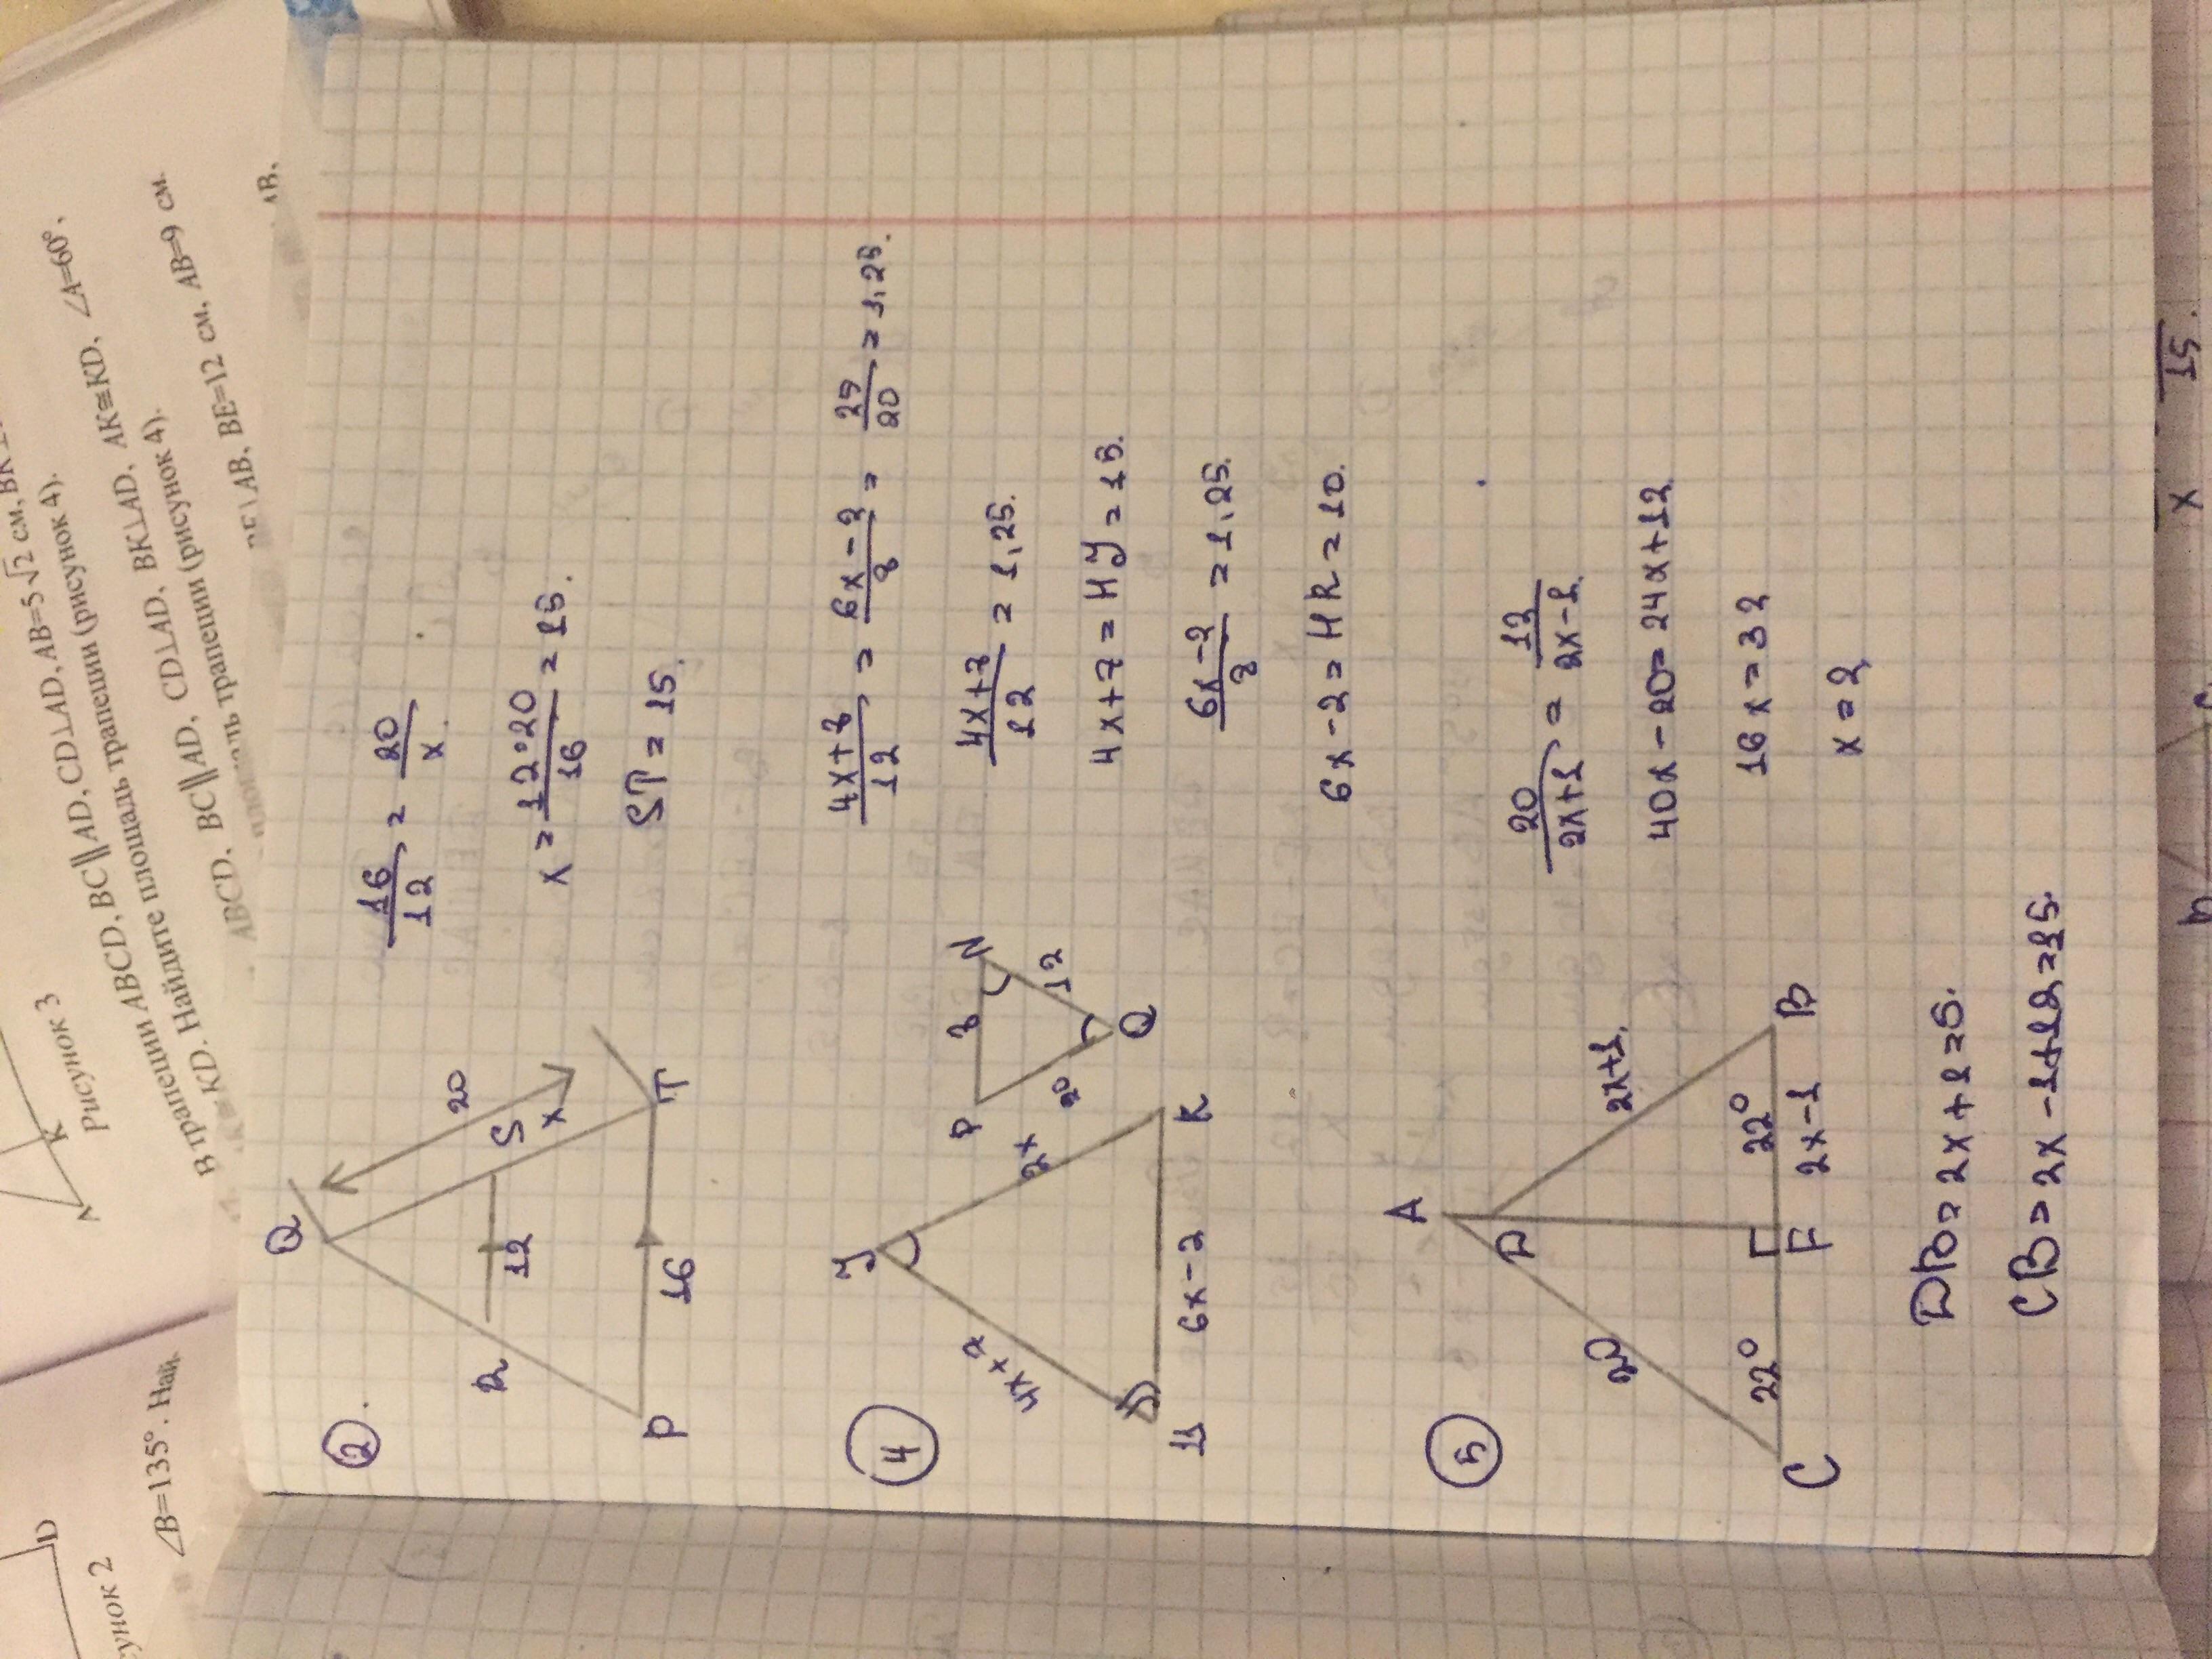 K
D
Рисунок 3
∠B=135°. Най
AB=5√2 см, BK
BC∥AD, CD⊥AD,
трапеции ABCD,
площадь трапеции (рисунок 4).
В трапеции ABCD, BC∥AD, CD⊥AD, BK⊥AD, AK≅KD, ∠A=60°,
KD. Найдите площадь трапеции (рисунок 4).
ABCD, BC∥AD, BE=12 см, AB=9 см.
②.
Q
20
R
12
S
x
P
16
T
16/12 = 20/x.
x = 12·20/16 = 15.
ST = 15.
④
J
4x+7
2x
H
6x-2
K
P
8
N
20
12
Q
4x+7/12 = 6x-2/8 = 25/20 = 1,25.
4x+7/12 = 1,25.
4x+7 = HJ = 15.
6x-2/8 = 1,25.
6x-2 = HK = 10.
⑤
A
D
20
2x+1.
22°
22°
C
F
2x-1
B
20/2x+1 = 12/2x-1.
40x-20 = 24x+12
16x = 32
x = 2
DB = 2x+1 = 5.
CB = 2x-1+12 = 15.
x
15.